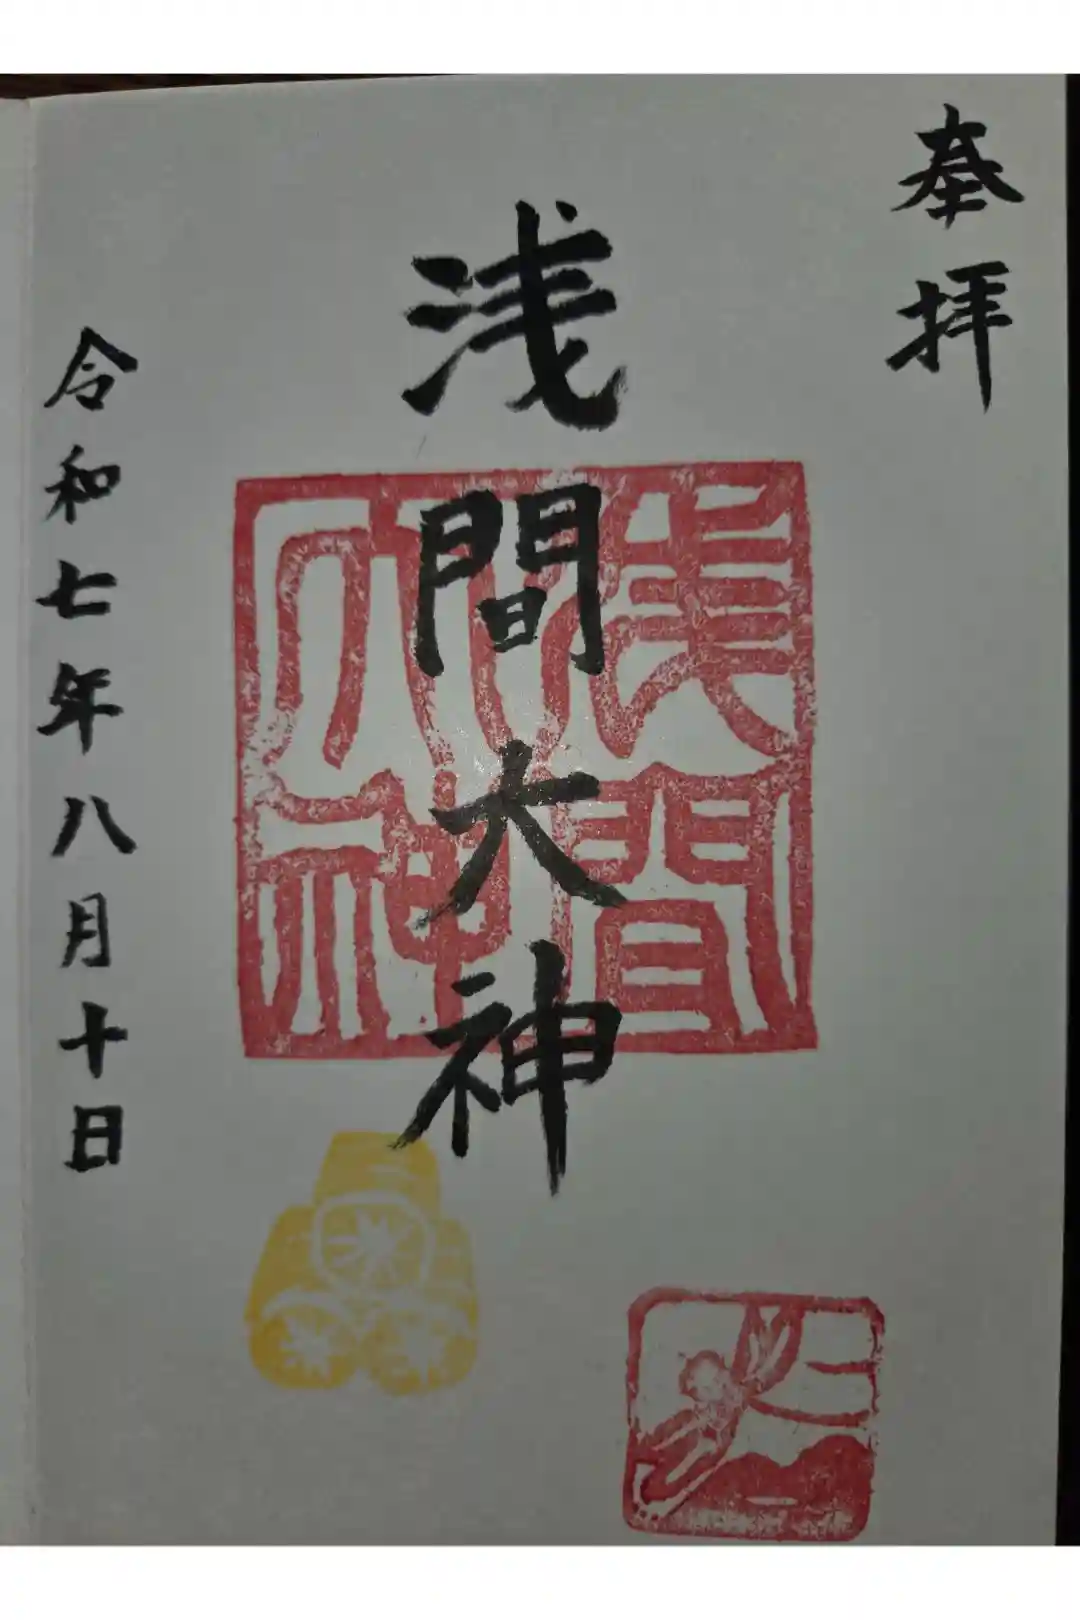 奉拝
浅間大神
浅間
大神
令和七年八月十日